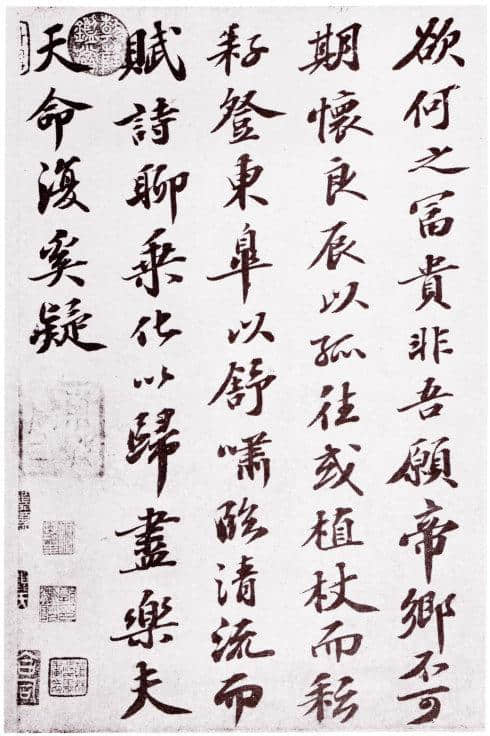 欲何之富貴非吾願帝鄉不可
期懷良辰以孤往或植杖而耘
耔登東皋以舒嘯臨清流而
賦詩聊乘化以歸盡樂夫
天命復奚疑